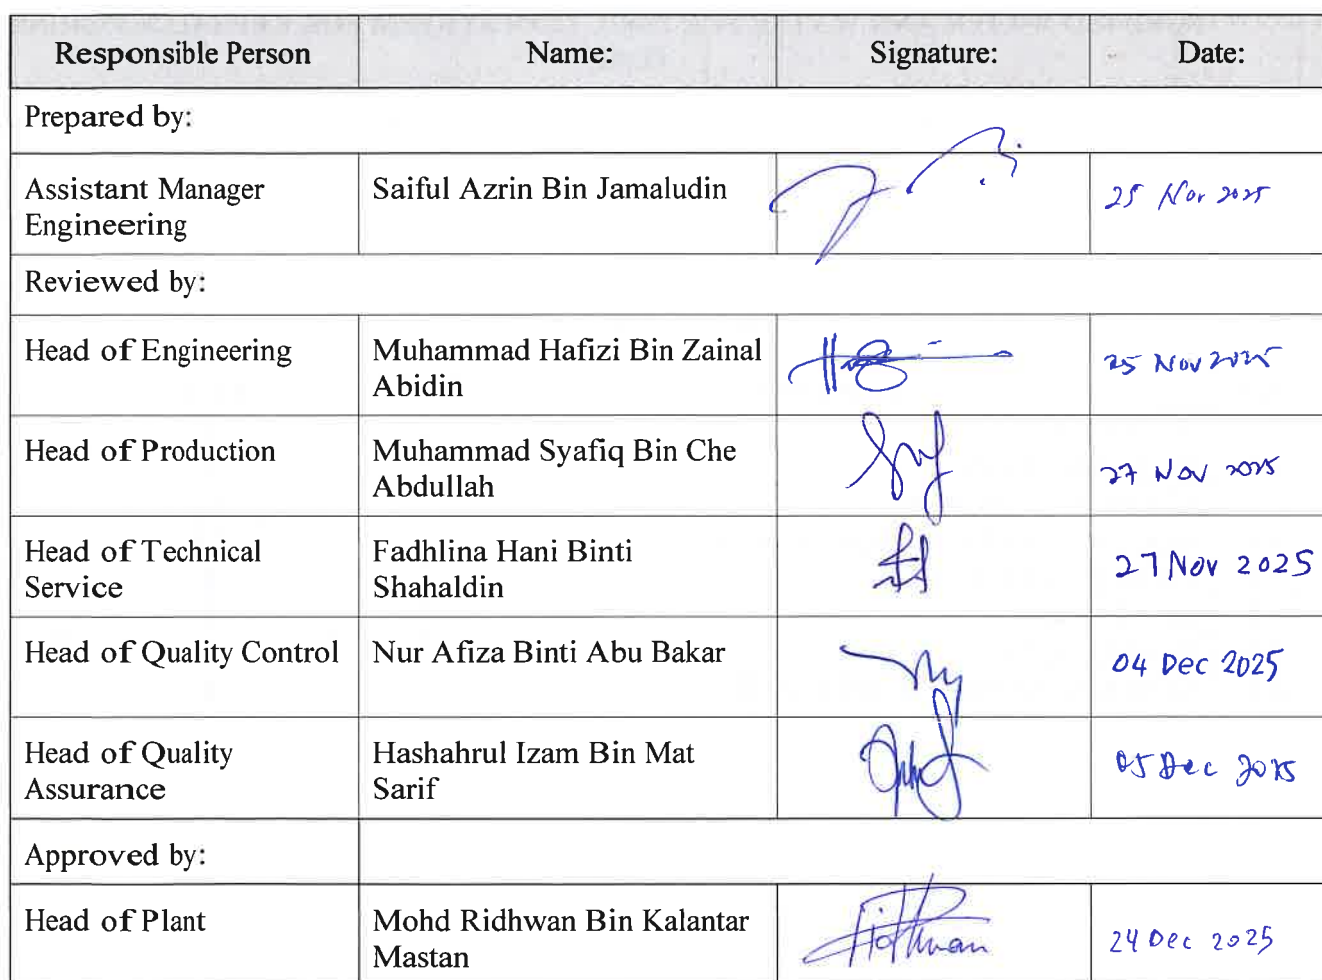 Responsible Person Name: Signature: Date:
Prepared by:
Assistant Manager Engineering Saiful Azrin Bin Jamaludin 25 Nov 2025
Reviewed by:
Head of Engineering Muhammad Hafizi Bin Zainal Abidin 25 Nov 2025
Head of Production Muhammad Syafiq Bin Che Abdullah 27 Nov 2025
Head of Technical Service Fadhlina Hani Binti Shahaldin 27 Nov 2025
Head of Quality Control Nur Afiza Binti Abu Bakar 04 Dec 2025
Head of Quality Assurance Hashahrul Izam Bin Mat Sarif 05 Dec 2025
Approved by:
Head of Plant Mohd Ridhwan Bin Kalantar Mastan 24 Dec 2025